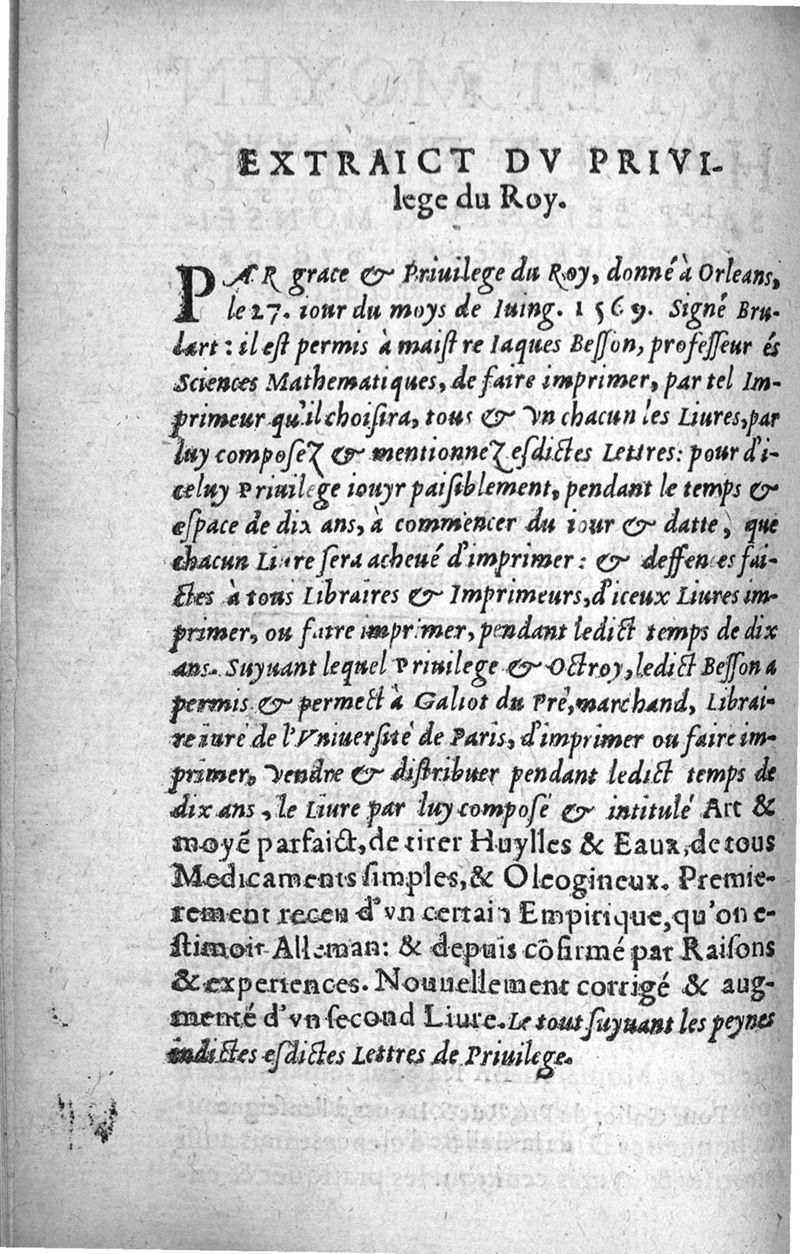 EXTRAICT DV PRIVI-
lege du Roy.
PAR grace & Priuilege du Roy, donné à Orleans,
le 27. iour du moys de Iuing. 1569. Signé Bru-
lart: il est permis à maistre Iaques Besson, professeur és
Sciences Mathematiques, de faire imprimer, par tel Im-
primeur qu'il choisira, tous & vn chacun les Liures, par
luy composez & mentionnez esdictes Lettres: pour d'i-
celuy Priuilege iouyr paisiblement, pendant le temps &
espace de dix ans, à commencer du iour & datte, que
chacun Liure sera acheué d'imprimer: & deffences fai-
ctes à tous Libraires & Imprimeurs, d'iceux Liures im-
primer, ou faire imprimer, pendant ledict temps de dix
ans. Suyuant lequel Priuilege & Octroy, ledict Besson a
permis & permect à Galiot du Pré, marchand, Librai-
re iuré de l'Vniuersité de Paris, d'imprimer ou faire im-
primer, vendre & distribuer pendant ledict temps de
dix ans, le Liure par luy composé & intitulé Art &
moyē parfaict, de tirer Huylles & Eaux, de tous
Medicaments simples, & Oleogineux. Premie-
rement receu d'vn certain Empirique, qu'on e-
stimoit Alleman: & depuis cōfirmé par Raisons
& experiences. Nouuellement corrigé & aug-
menté d'vn second Liure. Le tout suyuant les peynes
indictes esdictes Lettres de Priuilege.